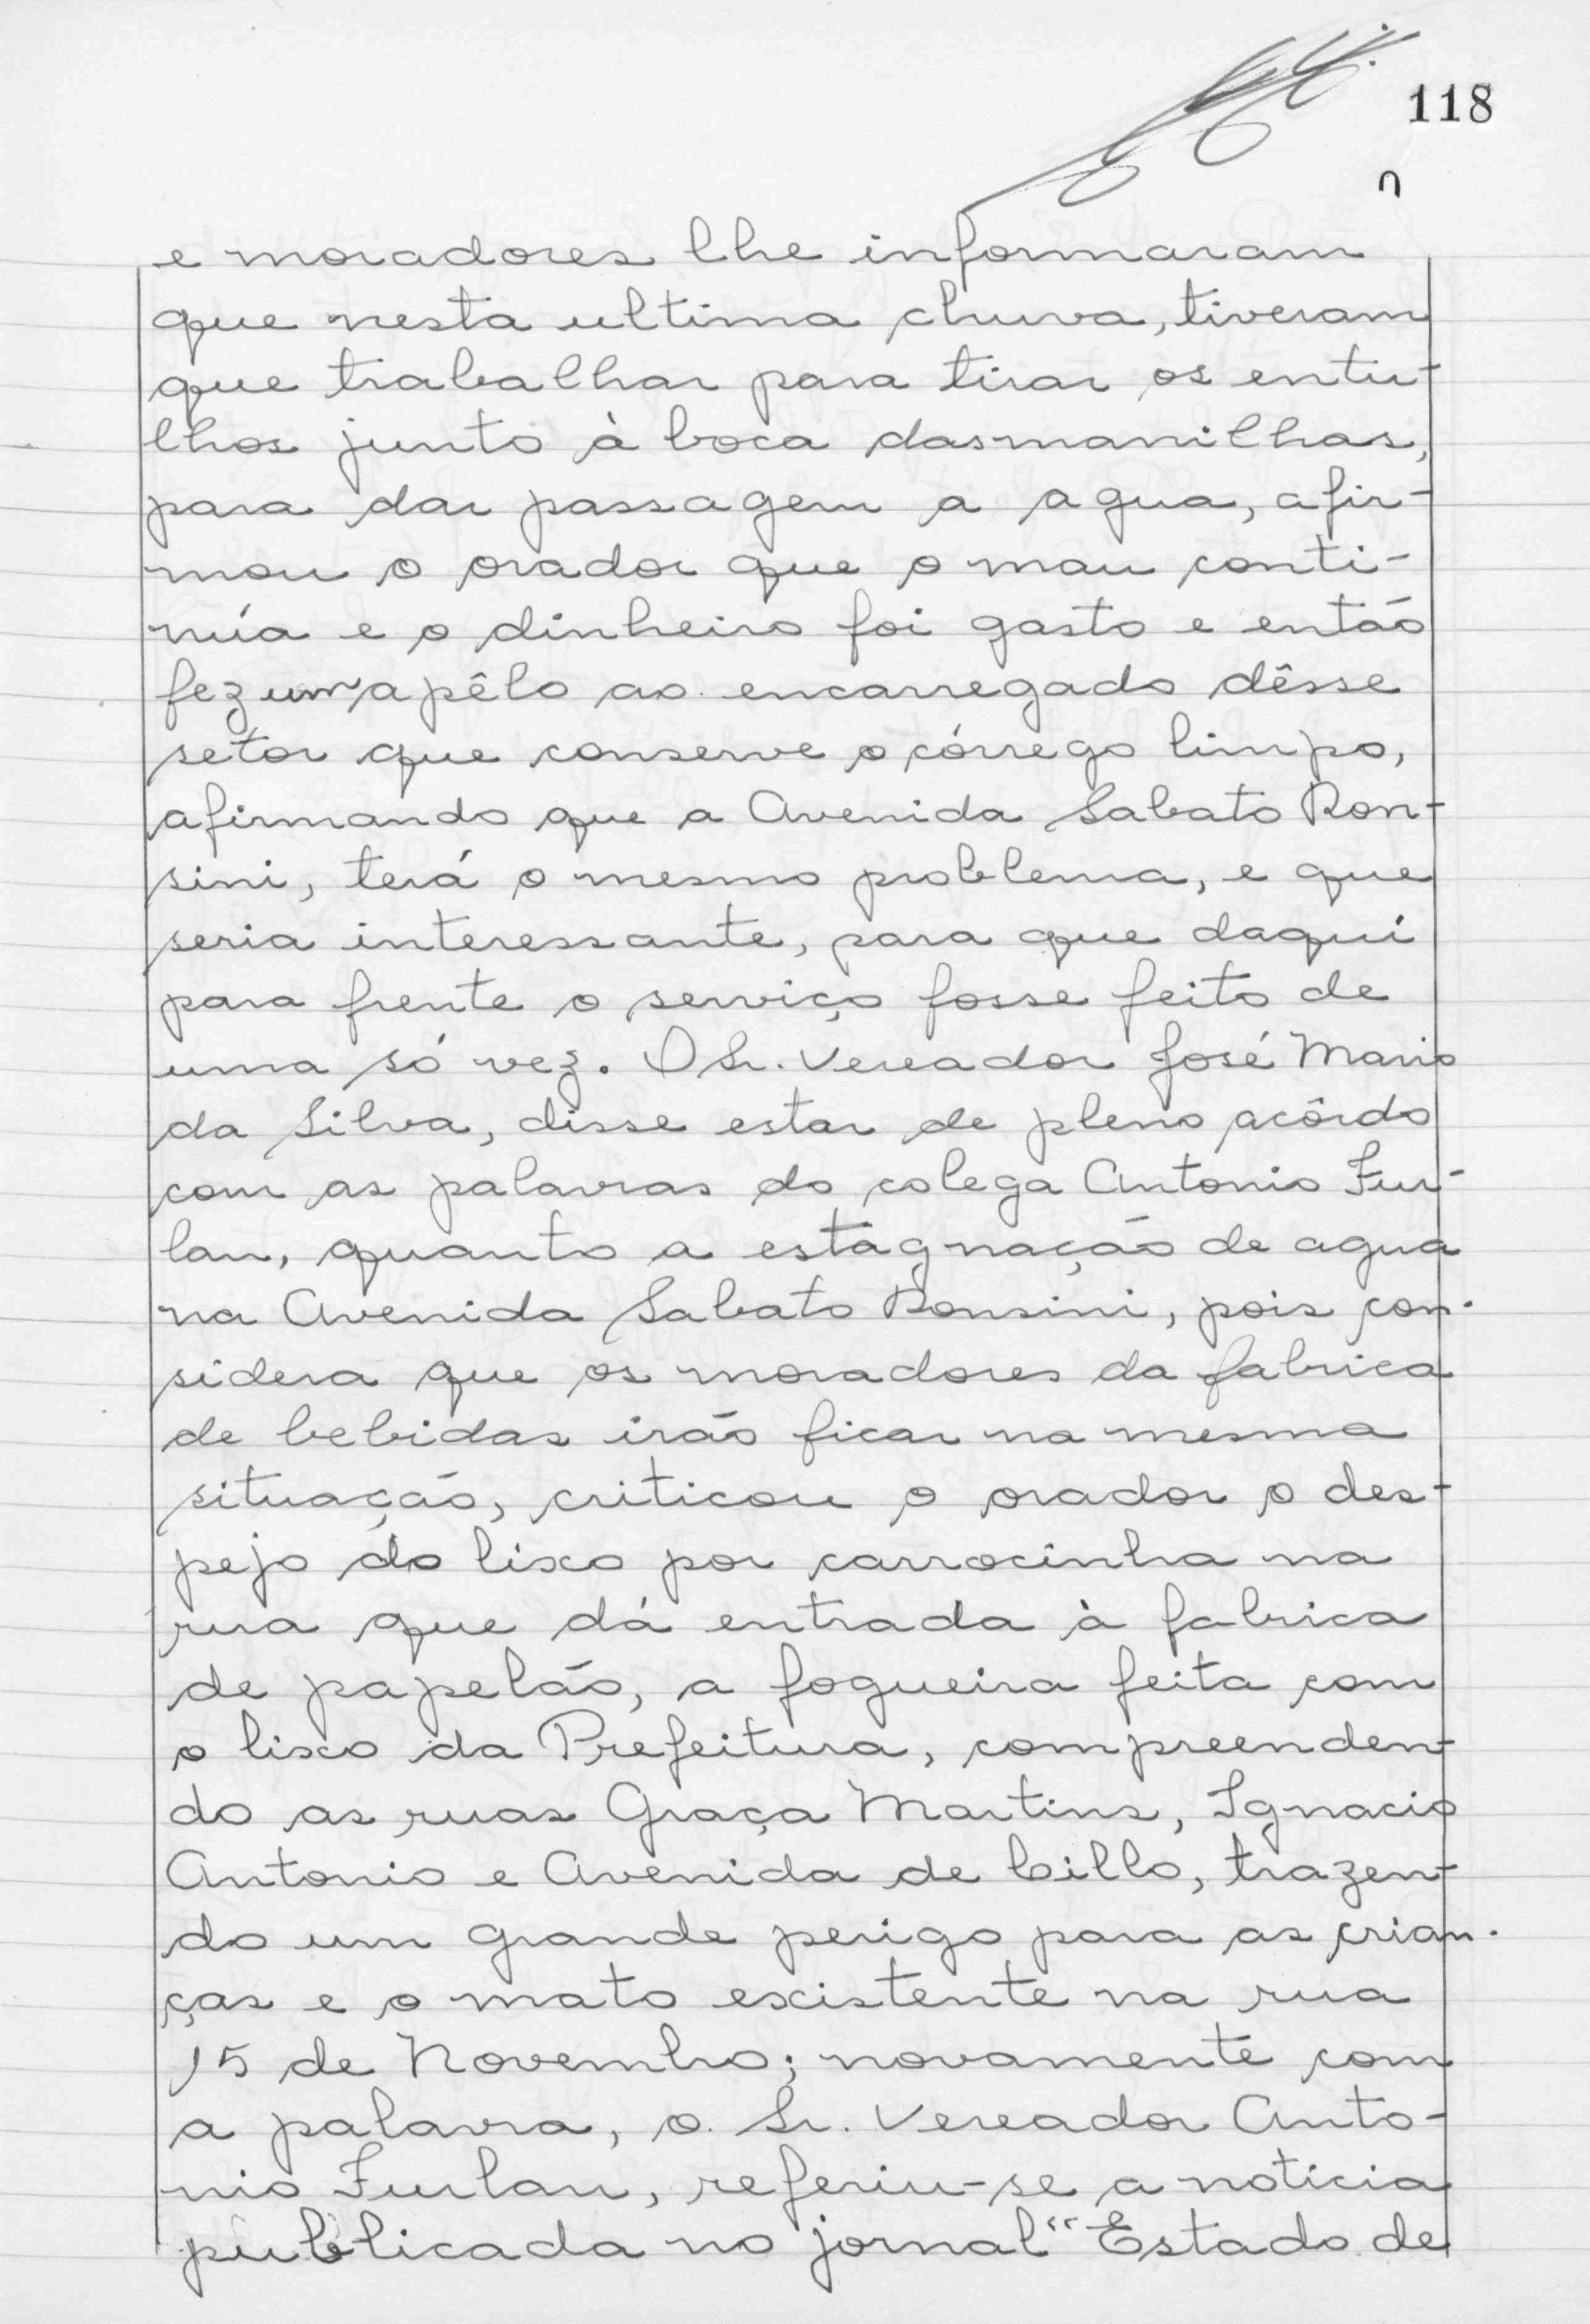 118
e moradores lhe informaram
que nesta ultima chuva, tiveram
que trabalhar para tirar os entu-
lhos junto à boca dasmanilhas,
para dar passagem a agua, afir-
mou o orador que o mau conti-
núa e o dinheiro foi gasto e então
fez um apêlo ao encarregado dêsse
setor que conserve o córrego limpo,
afirmando que a Avenida Sabato Ron-
sini, terá o mesmo problema, e que
seria interessante, para que daqui
para frente o serviço fosse feito de
uma só vez. O Sr. Vereador José Mario
da Silva, disse estar de pleno acôrdo
com as palavras do colega Antonio Fur-
lan, quanto a estagnação de agua
na Avenida Sabato Ronsini, pois con-
sidera que os moradores da fabrica
de bebidas irão ficar na mesma
situação, criticou o orador o des-
pejo do lixo por carrocinha na
rua que dá entrada à fabrica
de papelão, a fogueira feita com
o lixo da Prefeitura, compreenden-
do as ruas Graça Martins, Ignacio
Antonio e Avenida de Cillo, trazen-
do um grande perigo para as crian-
ças e o mato existente na rua
15 de Novembro; novamente com
a palavra, o. Sr. Vereador Anto-
nio Furlan, referiu-se a noticia
publicada no jornal "Estado de